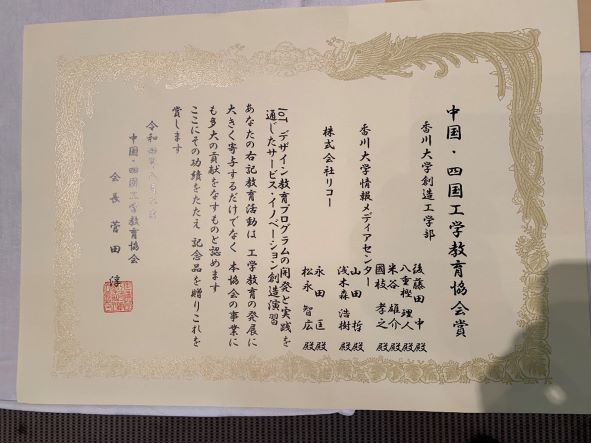 中国・四国工学教育協会賞
香川大学創造工学部
後藤田 中 殿
八重樫 理人 殿
米谷 雄介 殿
國枝 孝之 殿
香川大学情報メディアセンター
山田 哲 殿
浅木森 浩樹 殿
株式会社リコー
永田 匡 殿
松永 智広 殿
IoTデザイン教育プログラムの開発と実践を
通じたサービス・イノベーション創造演習
あなたの右記教育活動は 工学教育の発展に
大きく寄与するだけでなく 本協会の事業に
も多大の貢献をなすものと認めます
ここにその功績をたたえ 記念品を贈りこれを
賞します
令和
中国・四国工学教育協会
会長 菅田 淳